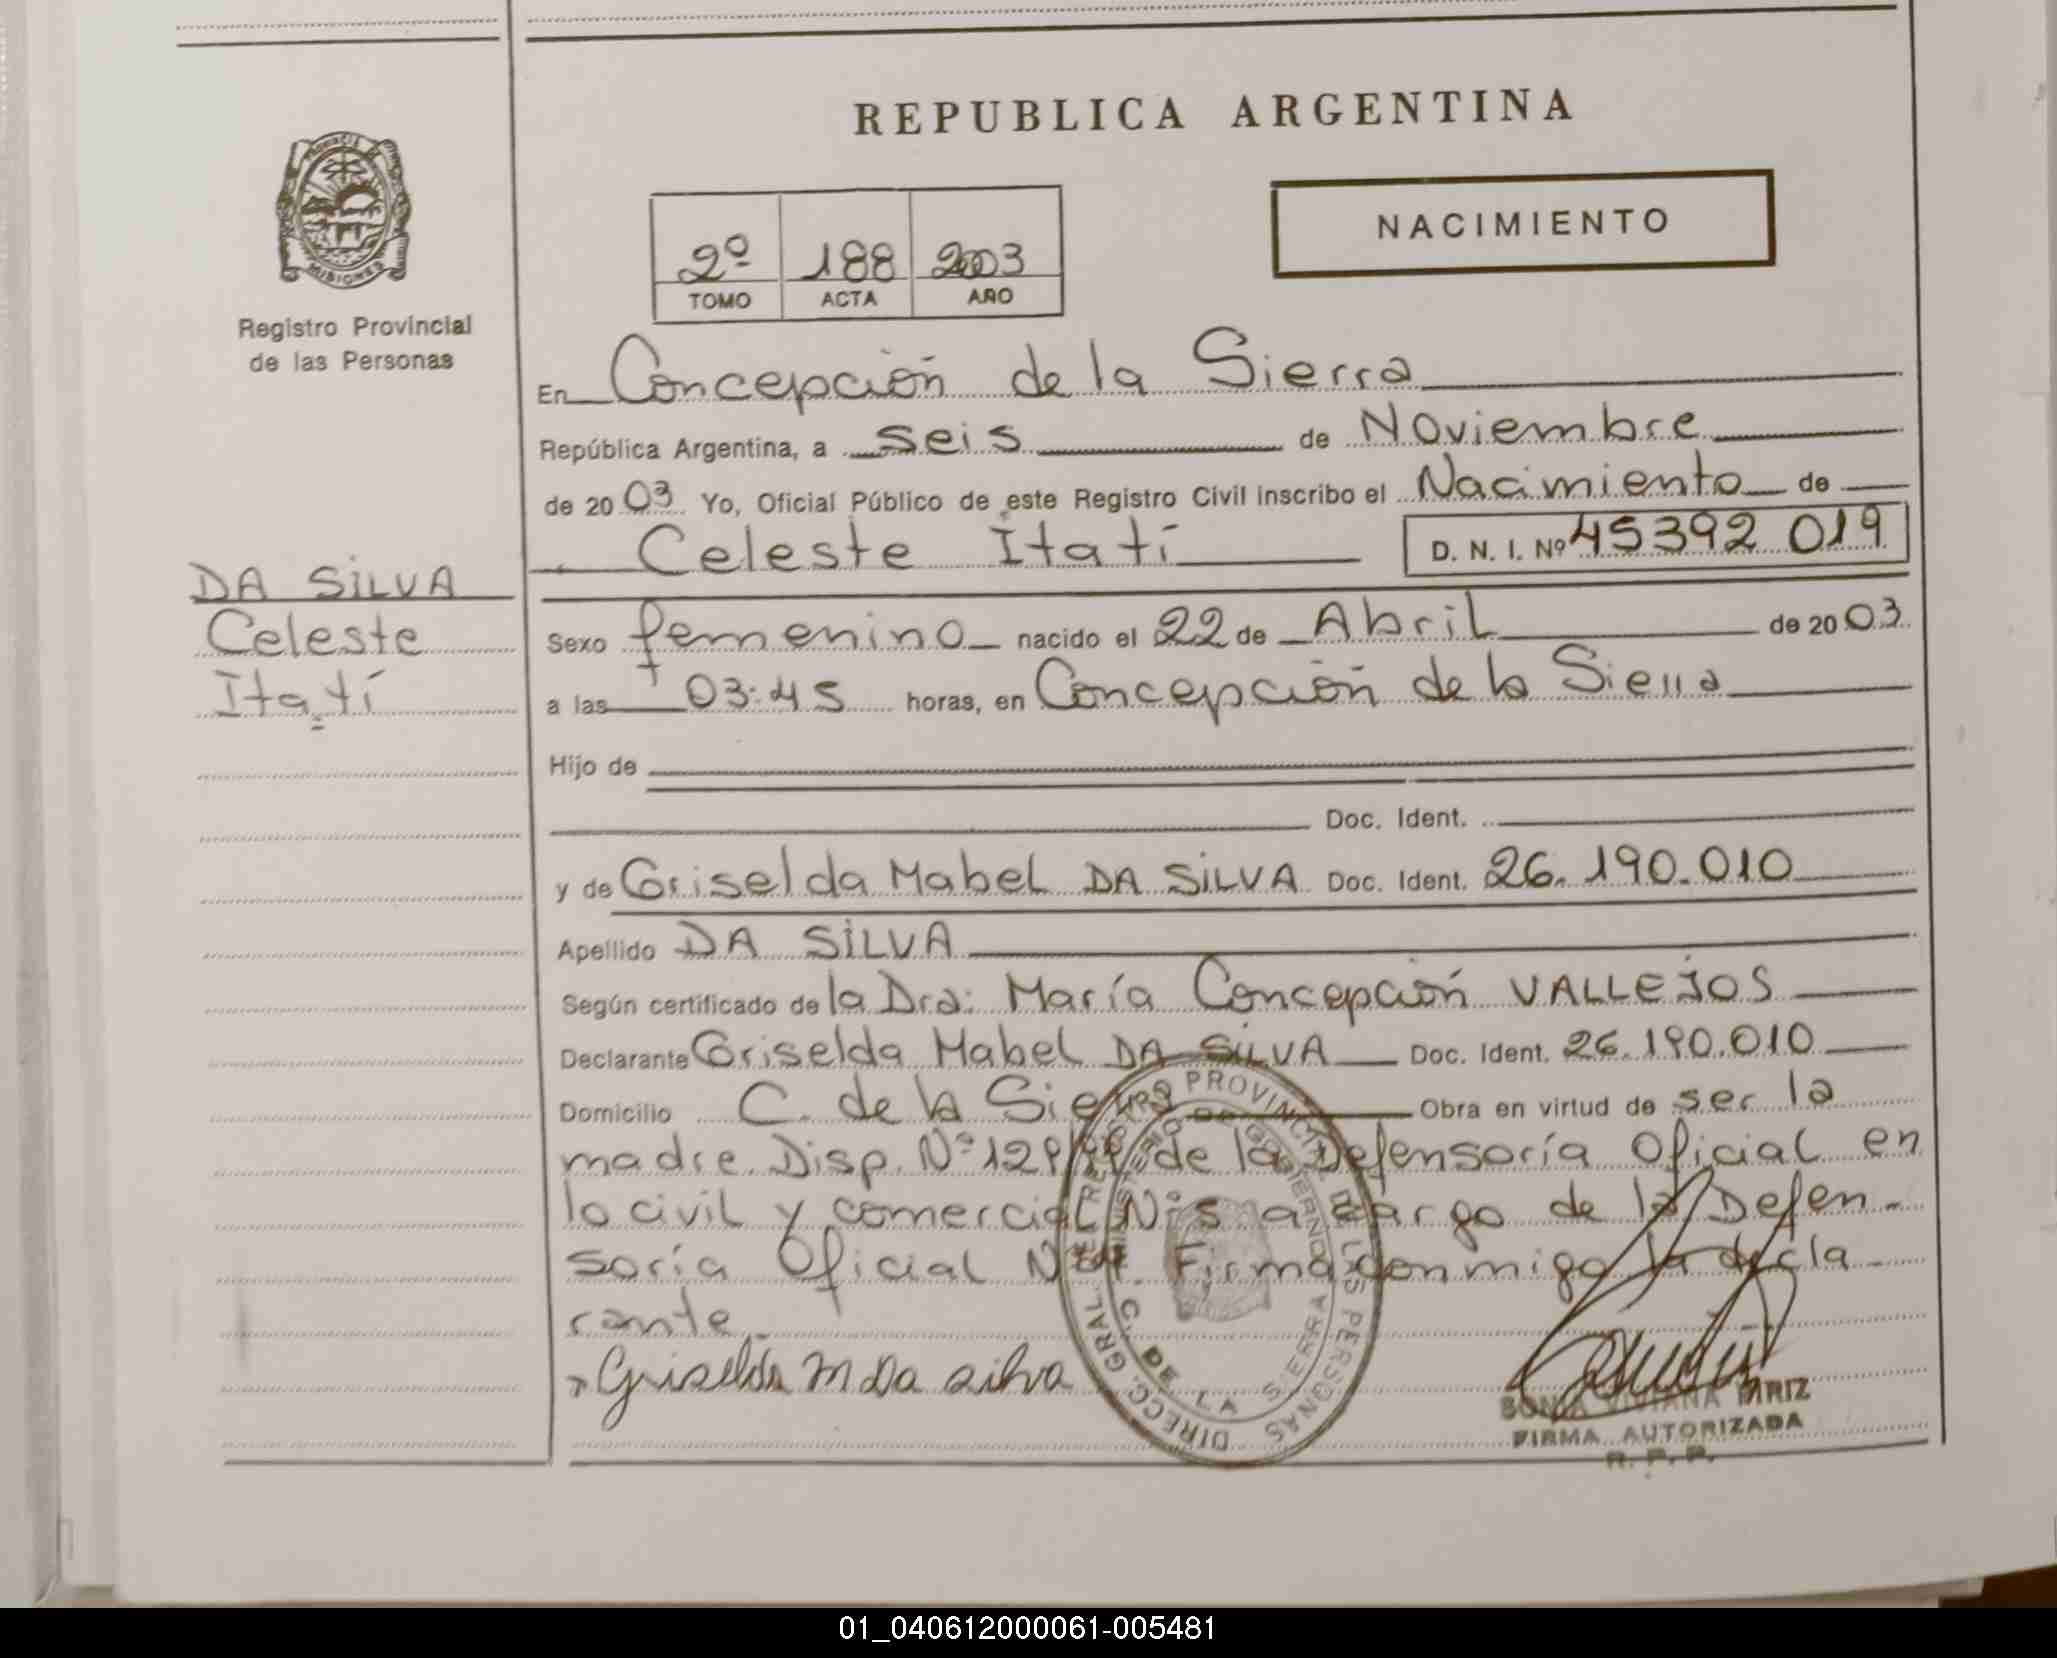 REPUBLICA ARGENTINA
PROVINCIA DE
MISIONES
Registro Provincial
de las Personas
NACIMIENTO
2º 188 2003
TOMO ACTA AÑO
En Concepción de la Sierra
República Argentina, a seis de Noviembre
de 2003 Yo, Oficial Público de este Registro Civil inscribo el Nacimiento de
Celeste Itatí D. N. I. Nº 45392 019
DA SILVA
Celeste
Itatí
Sexo femenino nacido el 22 de Abril de 2003
a las 03:45 horas, en Concepción de la Sierra
Hijo de
Doc. Ident.
y de Griselda Mabel DA SILVA Doc. Ident. 26.190.010
Apellido DA SILVA
Según certificado de la Dra: María Concepción VALLEJOS
Declarante Griselda Mabel DA SILVA Doc. Ident. 26.190.010
Domicilio C. de la Sierra Obra en virtud de ser la
madre. Disp. Nº de la Defensoría Oficial en
lo civil y comercial a cargo de la Defen-
soría Oficial Firma conmigo la decla
rante.
Griselda M Da silva
DIRECC. GRAL. DEL REGISTRO PROVINCIAL DE LAS PERSONAS
MINISTERIO DE GOBIERNO
C. DE LA SIERRA
SONIA VIVIANA
FIRMA AUTORIZADA
R. P. P.
01_040612000061-005481